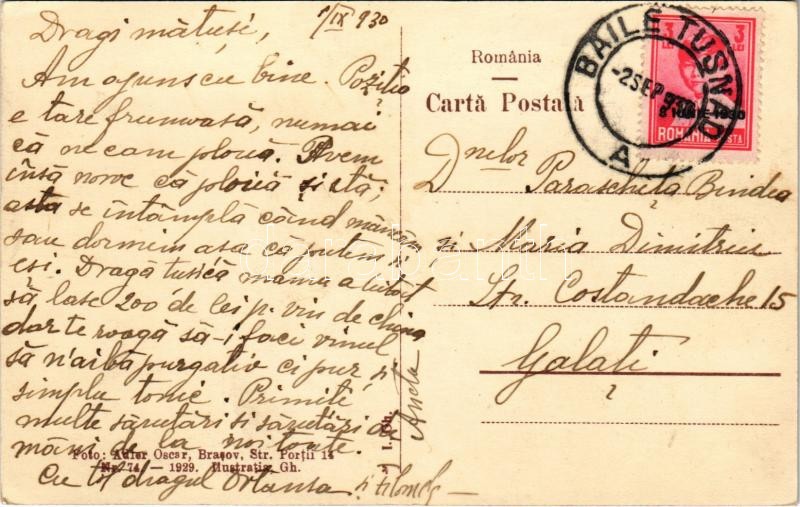 1/IX 930
Dragi mătuși,
Am ajuns cu bine. Poziția
e tare frumoasă, numai
că ne cam plouă. Avem
însă noroc că plouă și stă;
asta se întâmplă când mâncăm
sau dormim așa că putem și
eși. Dragă tușică mama a uitat
să lase 200 de lei p. vin de china
dar te roagă să-i faci vinul
să n'aibă purgativ ci pur și
simplu tonic. Primiți
multe sărutări și sărutări de
mâni de la noi toate.
Cu tot dragul Ortansa și
Aneta
Foto: Adler Oscar, Brașov, Str. Porții 14
Nr. 74. — 1929. Ilustrația Gh.
România
Cartă Poștală
BAILE TUȘNAD
-2 SEP 930
3 LEI
8 IUNIE 1930
ROMÂNIA POSTA
Dnelor
Paraschița Bindea
și Maria Dimitriu
Str. Costandache 15
Galați
darabanth